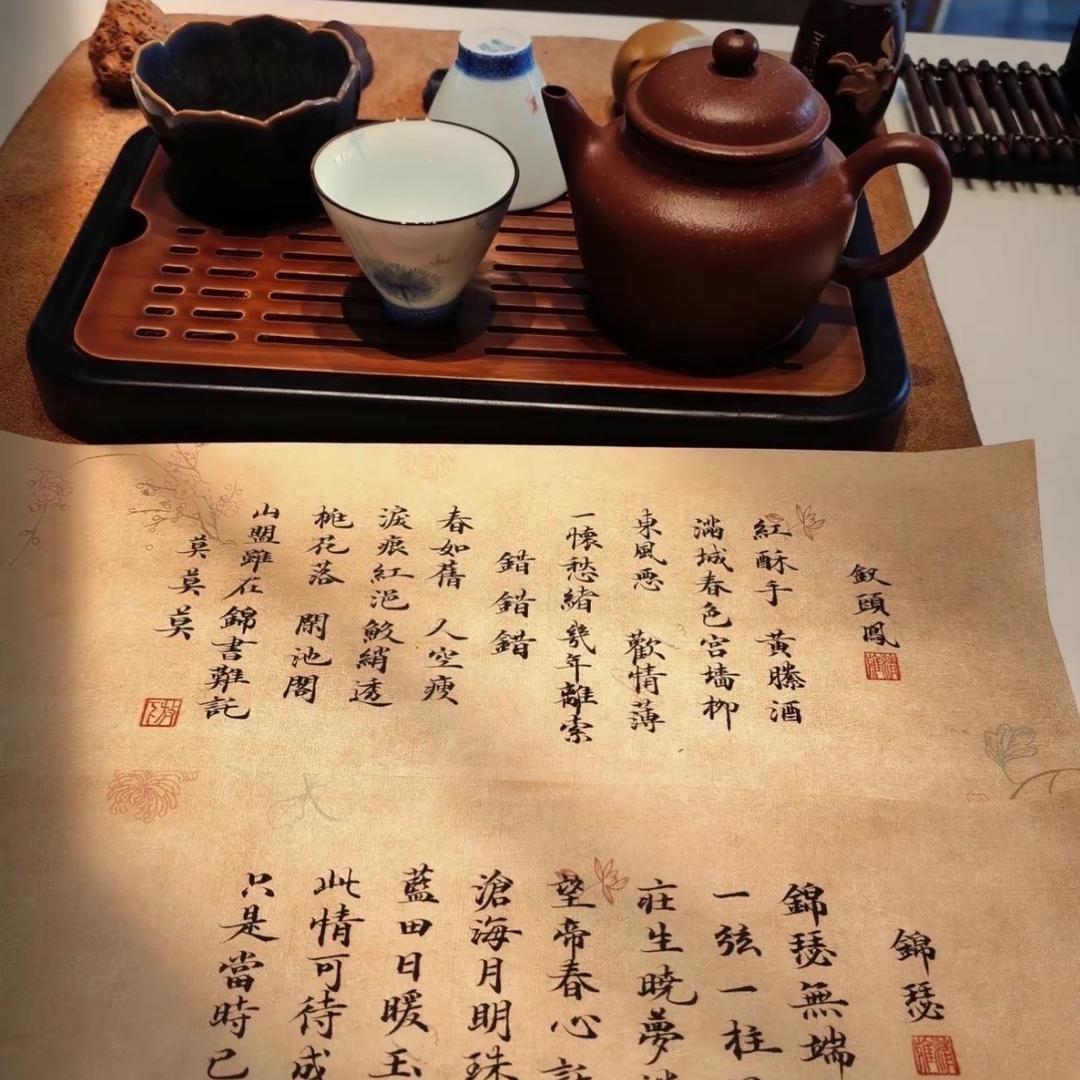 釵頭鳳
紅酥手 黃縢酒
滿城春色宮墻柳
東風惡 歡情薄
一懷愁緒幾年離索
錯錯錯
春如舊 人空瘦
淚痕紅浥鮫綃透
桃花落 閑池閣
山盟雖在錦書難託
莫莫莫
錦瑟
錦瑟無端
一弦一柱
莊生曉夢
望帝春心託
滄海月明珠
藍田日暖玉
此情可待成
只是當時已